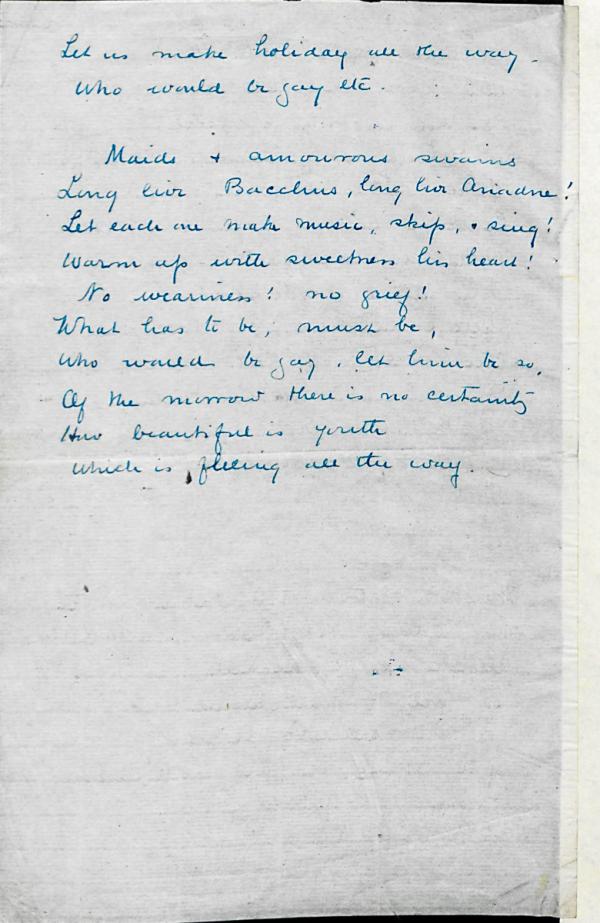 Let us make holiday all the way.
Who would be gay etc.
Maids & amourous swains
Long live Bacchus, long live Ariadne!
Let each one make music, skip, & sing!
Warm up with sweetness his heart!
No weariness! no grief!
What has to be, must be,
Who would be gay, let him be so,
Of the morrow there is no certainty
How beautiful is youth
Which is fleeing all the way.